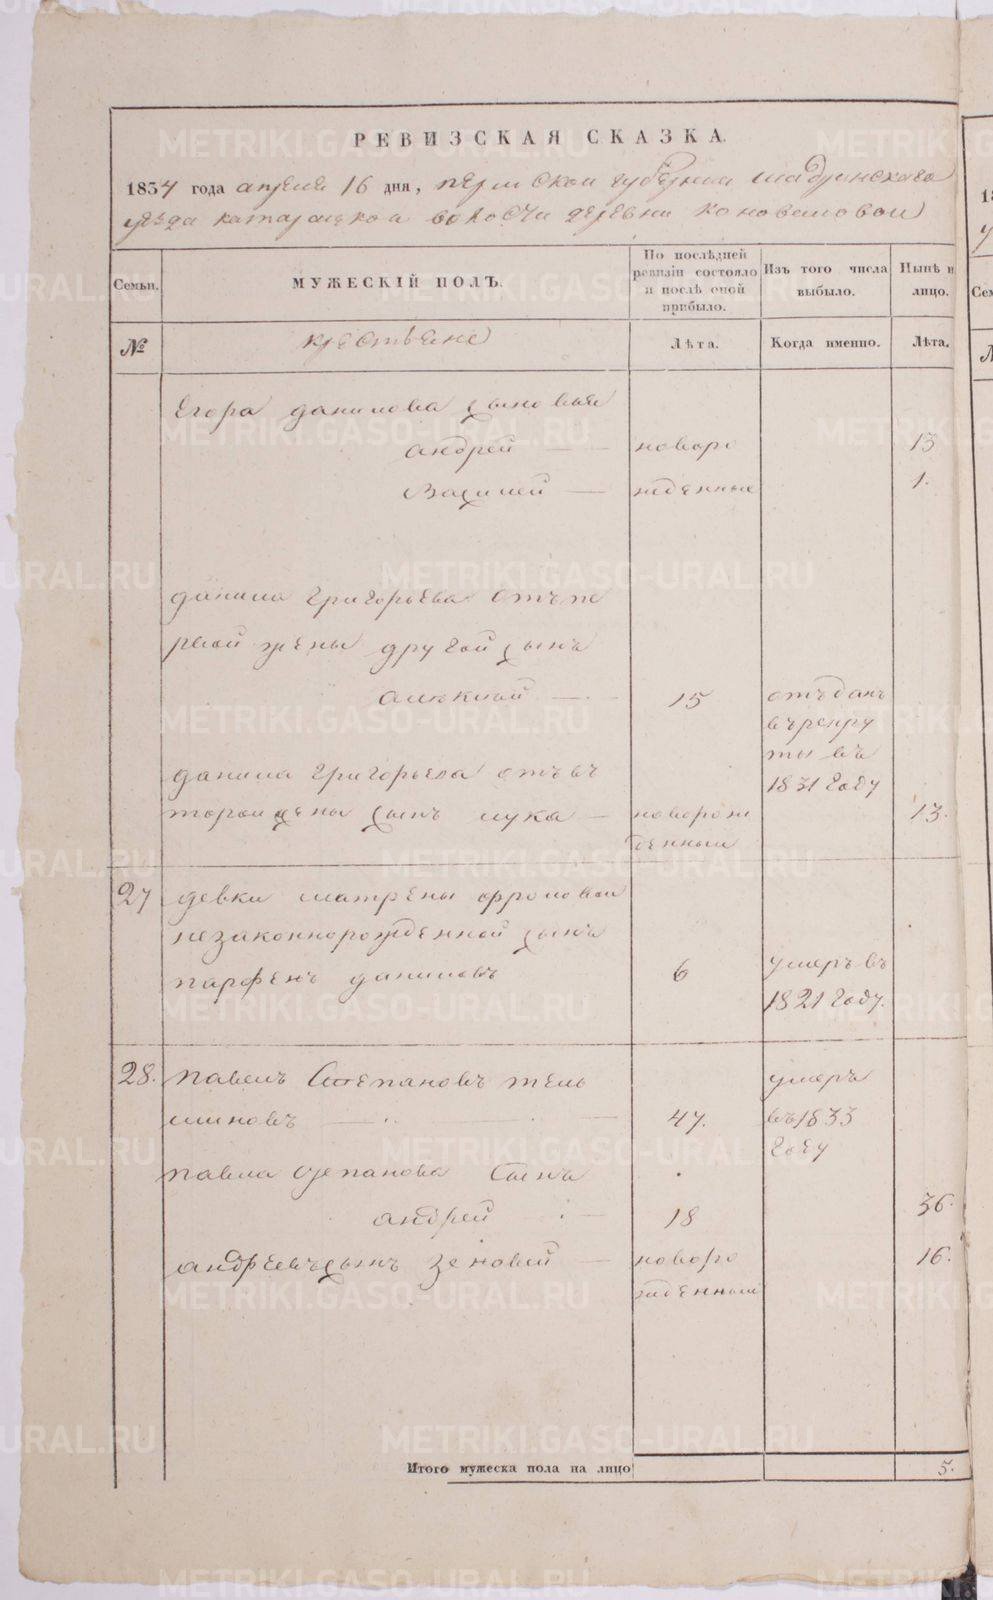 РЕВИЗСКАЯ СКАЗКА.
1834 года апреля 16 дня, пермской губернии шадринскаго
уезда катайской волости деревни коноваловой
Семьи.
МУЖЕСКІЙ ПОЛЪ.
По послѣдней ревизіи состояло и послѣ оной прибыло.
Изъ того числа выбыло.
Нынѣ на лицо.
№
крестьяне
Лѣта.
Когда именно.
Лѣта.
Егора данилова сыновья
андрей — новоро 13
Василей — жденные 1.
данила Григорьева отъ пе
рвой жены другой сынъ
алексей — 15 отъданъ
въ рекру
ты въ
1831 году
данила Григорьева отъ в
торой жены сынъ лука — новорож 13.
денный
27 девки матрены фроловой
незаконнорожденной сынъ
парфенъ даниловъ 6 умеръ въ
1821 году.
28. павелъ Степановъ умеръ
— 47. въ 1833
году
павла степанова сынъ
андрей — 18 36.
андреевъ сынъ зеновей — новоро 16.
жденный
Итого мужеска пола на лицо 5.
METRIKI.GASO-URAL.RU